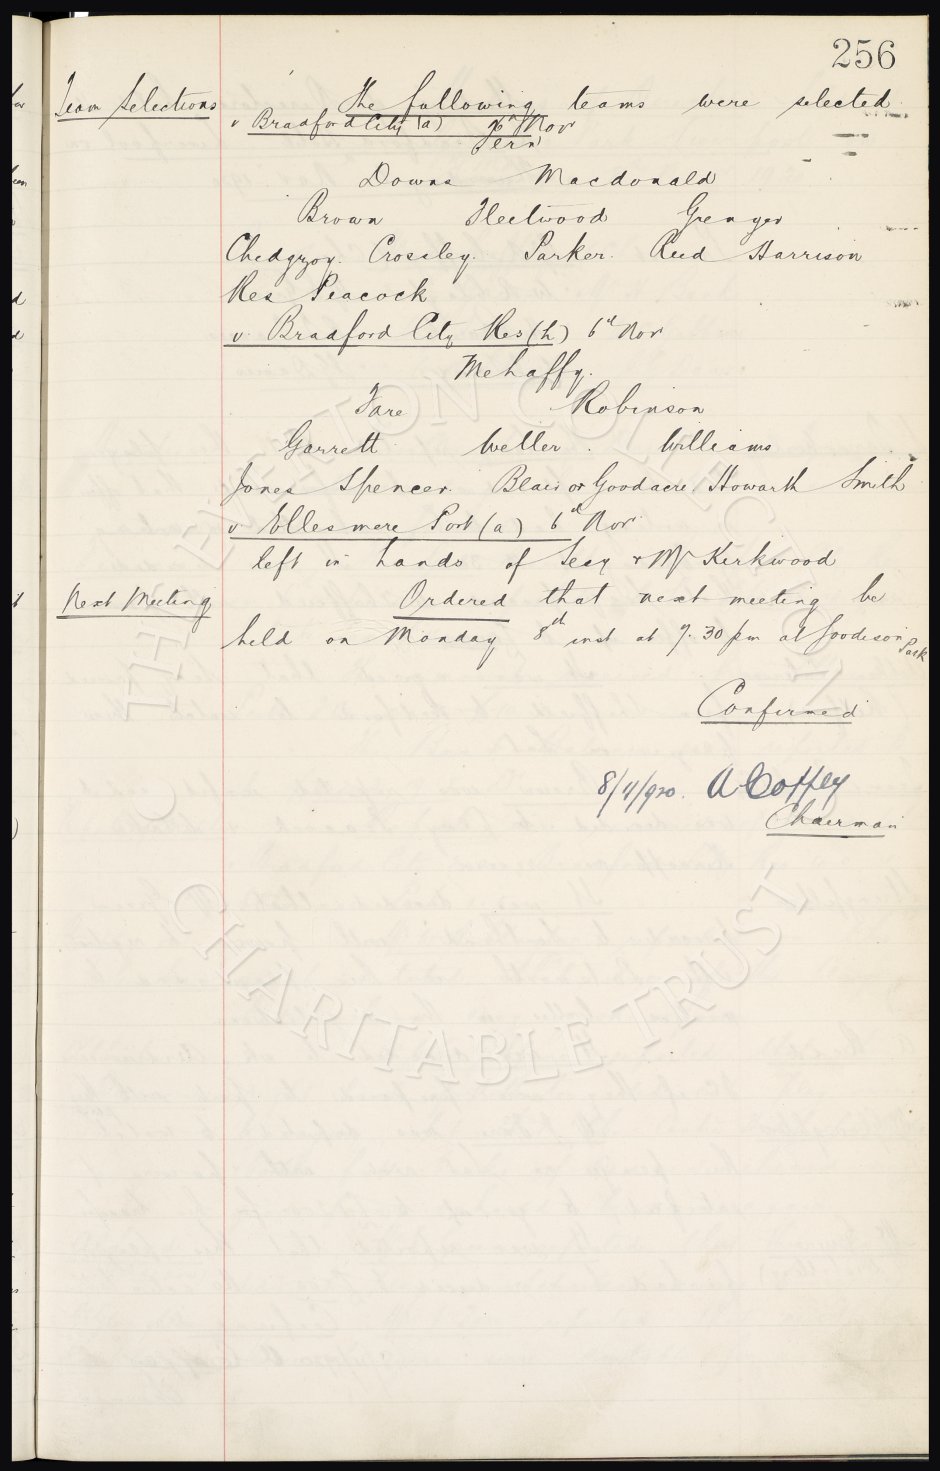 256
Team Selections The following teams were selected
v Bradford City (a) 6th Nov
Fern
Downs Macdonald
Brown Fleetwood Grenyer
Chedgzoy. Crossley. Parker. Reed Harrison
Res Peacock
v. Bradford City Res (h) 6th Nov
Mehaffy.
Fare Robinson
Garrett Weller. Williams
Jones Spencer. Blair or Goodacre. Howarth Smith
v. Ellesmere Port (a) 6th Nov
left in hands of Secy & Mr Kirkwood
Next Meeting Ordered that next meeting be
held on Monday 8th inst at 7.30 pm at Goodison Park
Confirmed
8/11/920. A Coffey
Chairman
THE EVERTON COLLECTION
CHARITABLE TRUST